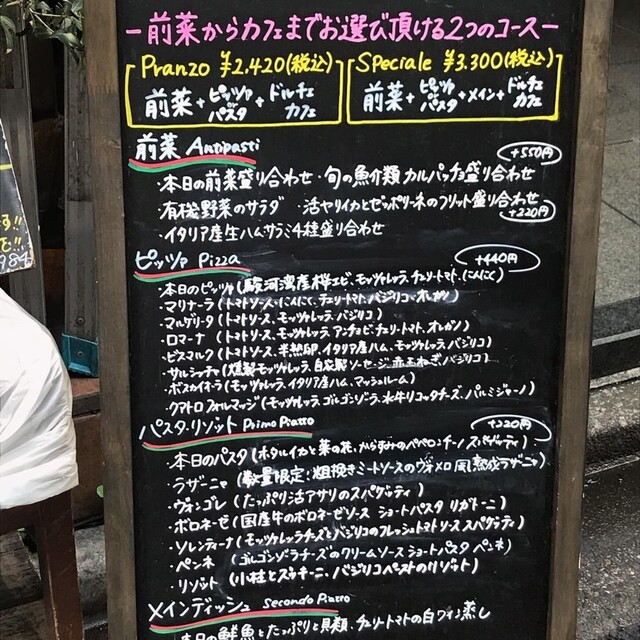 －前菜からカフェまでお選び頂ける2つのコース－
Pranzo ¥2,420(税込)
前菜+ピッツァ パスタ+ドルチェ カフェ
Speciale ¥3,300(税込)
前菜+ピッツァ パスタ+メイン+ドルチェ カフェ
前菜 Antipasti
+550円
・本日の前菜盛り合わせ・旬の魚介類カルパッチョ盛り合わせ
・有機野菜のサラダ ・活ヤリイカとゼッポリーネのフリット盛り合わせ
+220円
・イタリア産生ハムサラミ4種盛り合わせ
ピッツァ Pizza
+440円
・本日のピッツァ(駿河湾産桜エビ、モッツァレッラ、チェリートマト、にんにく)
・マリナーラ(トマトソース、にんにく、チェリートマト、バジリコ、オレガノ)
・マルゲリータ(トマトソース、モッツァレッラ、バジリコ)
・ロマーナ(トマトソース、モッツァレッラ、アンチョビ、チェリートマト、オレガノ)
・ビスマルク(トマトソース、半熟卵、イタリア産ハム、モッツァレッラ、バジリコ)
・サルシッチャ(燻製モッツァレッラ、自家製ソーセージ、赤玉ねぎ、バジリコ)
・ボスカイオーラ(モッツァレッラ、イタリア産ハム、マッシュルーム)
・クアトロフォルマッジ(モッツァレッラ、ゴルゴンゾーラ、水牛リコッタチーズ、パルミジャーノ)
パスタ・リゾット Primo Piatto
+220円
・本日のパスタ(ホタルイカと菜の花、からすみのペペロンチーノ スパゲッティ)
・ラザーニャ(数量限定:粗挽きミートソースのヴォメロ風熟成ラザーニャ)
・ヴォンゴレ(たっぷり活アサリのスパゲッティ)
・ボロネーゼ(国産牛のボロネーゼソース ショートパスタ リガトーニ)
・ソレンティーナ(モッツァレッラチーズとバジリコのフレッシュトマトソース スパゲッティ)
・ペンネ(ゴルゴンゾーラチーズのクリームソース ショートパスタ ペンネ)
・リゾット(小柱とズッキーニ、バジリコペーストのリゾット)
メインディッシュ Secondo Piatto
・本日の鮮魚とたっぷりと貝類、チェリートマトの白ワイン蒸し